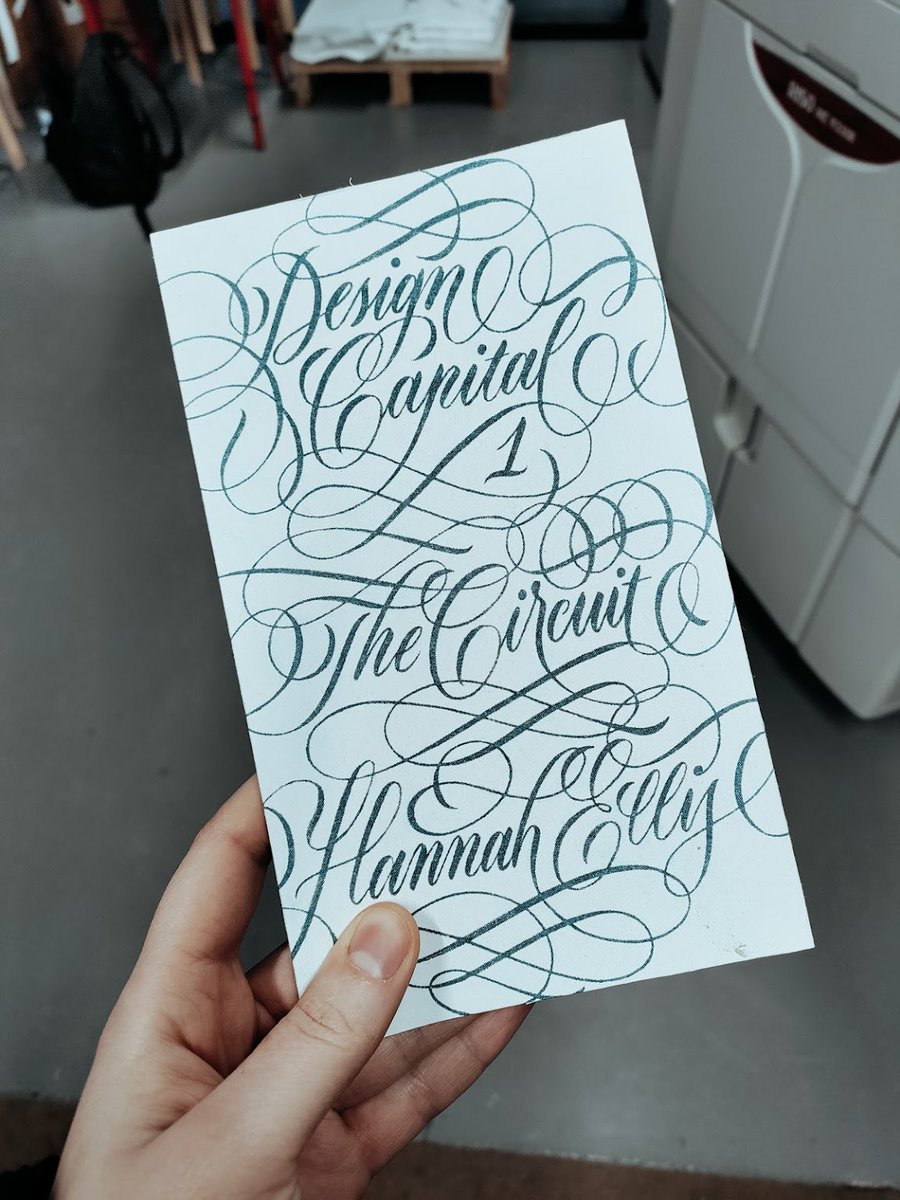 Design
Capital
1
The Circuit
Hannah Ellis
RISO